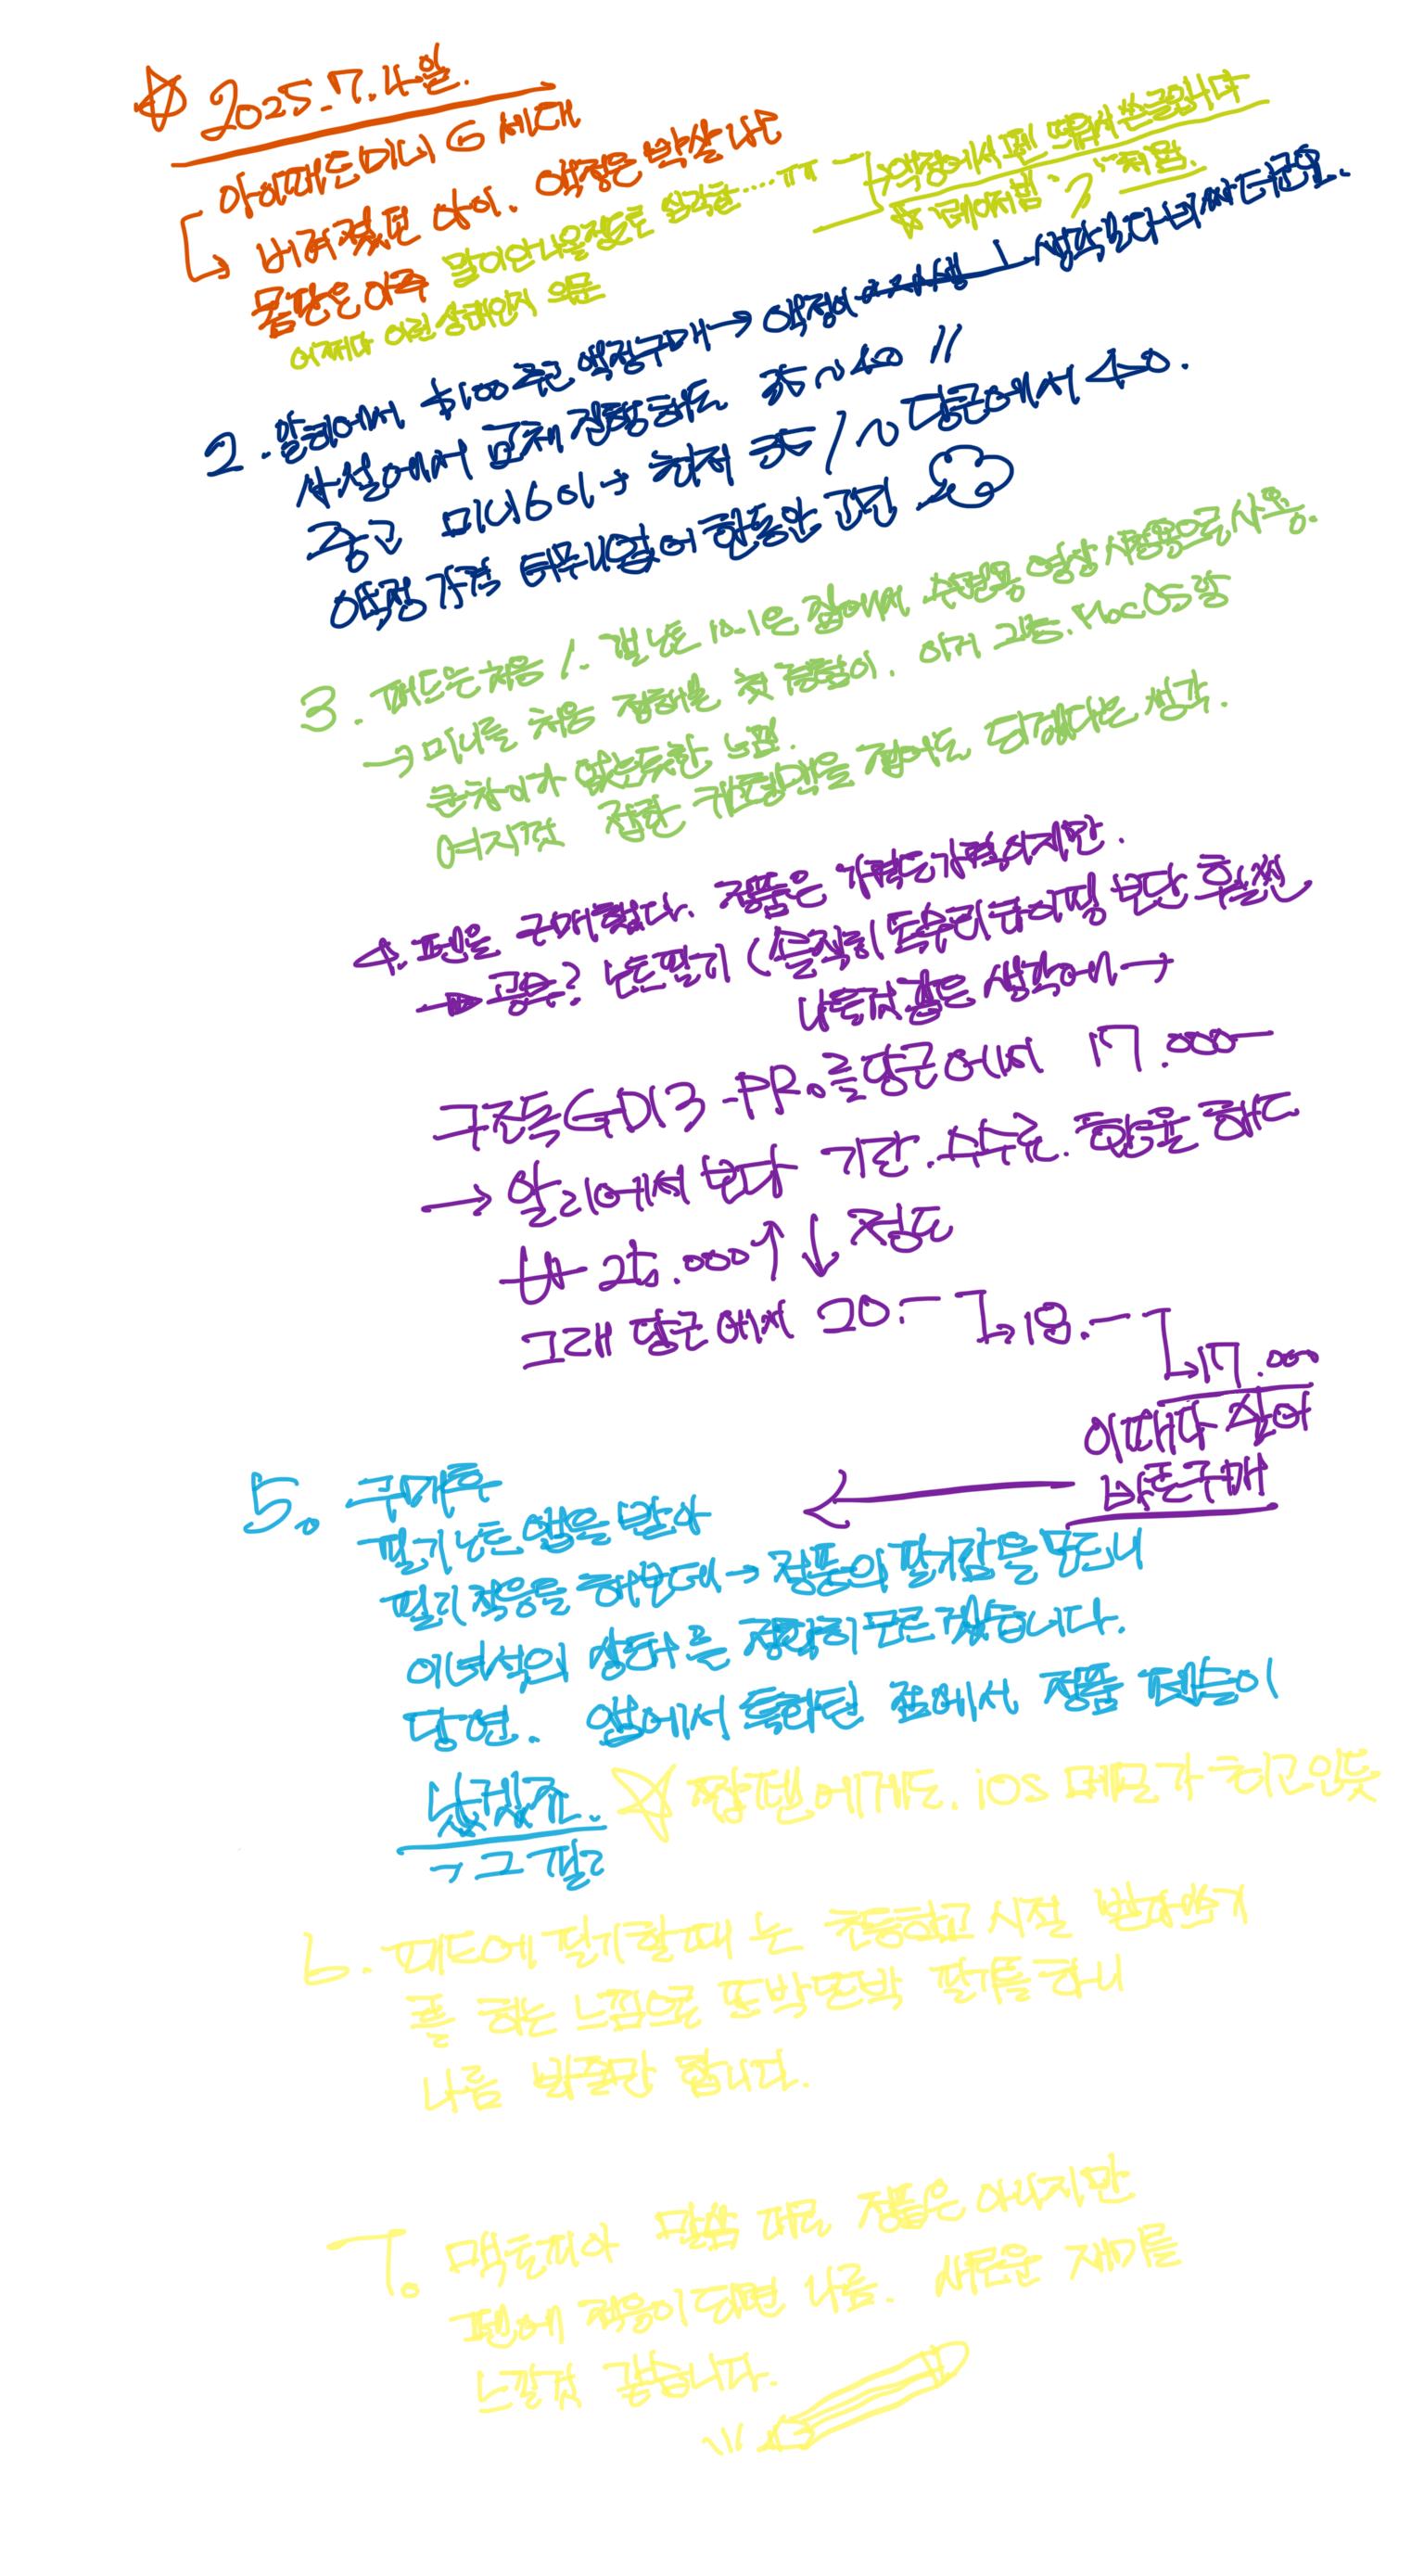 ☆ 2025.7.4일.
아이패드미니 6 세대
↳ 버려졌던 아이. 액정은 박살나고
몸판은 아주 말이안나올정도로 심각함.....ㅠㅠ
어쩌다 이런 상태인지 의문
액정에서 펜 띄워서 쓴글입니다
☆ "레이저빔"처럼.
2. 알리에서 $100 주고 액정구매 → 액정이 생각보다 비싸드군요.
사설에서 교체 진행해도 35~40 //
중고 미니6이 → 최저 35/~당근에서 40.
액정가격 터무니없어 한동안 고민
3. 패드는처음 /. 갤노트 10.1은 집에서 주방용 영상 시청용으로 사용.
→ 미니를 처음 접해본 첫 경험이. 아커 고종. MacOS랑
큰차이가 없는듯한 느낌.
여지껏 접한 맥을 접어도 되겠다는 생각.
4. 펜을 구매했다. 정품은 가격도가격이지만.
→ 공부? 노트필기 (솔직히 독수리타이핑 보단 훨씬
나을것 같은 생각에 →
구조독 GD13-PRo를 당근에서 17.000-
→ 알리에서 보다 기간. 수수료. 환율 해도
₩ 25.000↑↓ 정도
그래 당근에서 20.- ↳18.- ↳17.000
이때다 싶어
바로구매
5. 구매후
필기노트 앱을 받아
필기 적응을 해보는데 → 정품의 필기감을 모르니
이녀석의 상태를 정확히 모르겠습니다.
당연. 앱에서 특화된 점에서 정품 펜들이
낫겠죠.
☆ 짭펜에게도. ios 메모가 최고인듯
6. 패드에 필기할때는 초등학교 시절 받아쓰기
를 하는 느낌으로 또박또박 필기를하니
나름 봐줄만 합니다.
7. 맥돌피아 말씀 대로 정품은 아니지만
펜에 적응이되면 나름. 새로운 재미를
느낄것 같습니다.